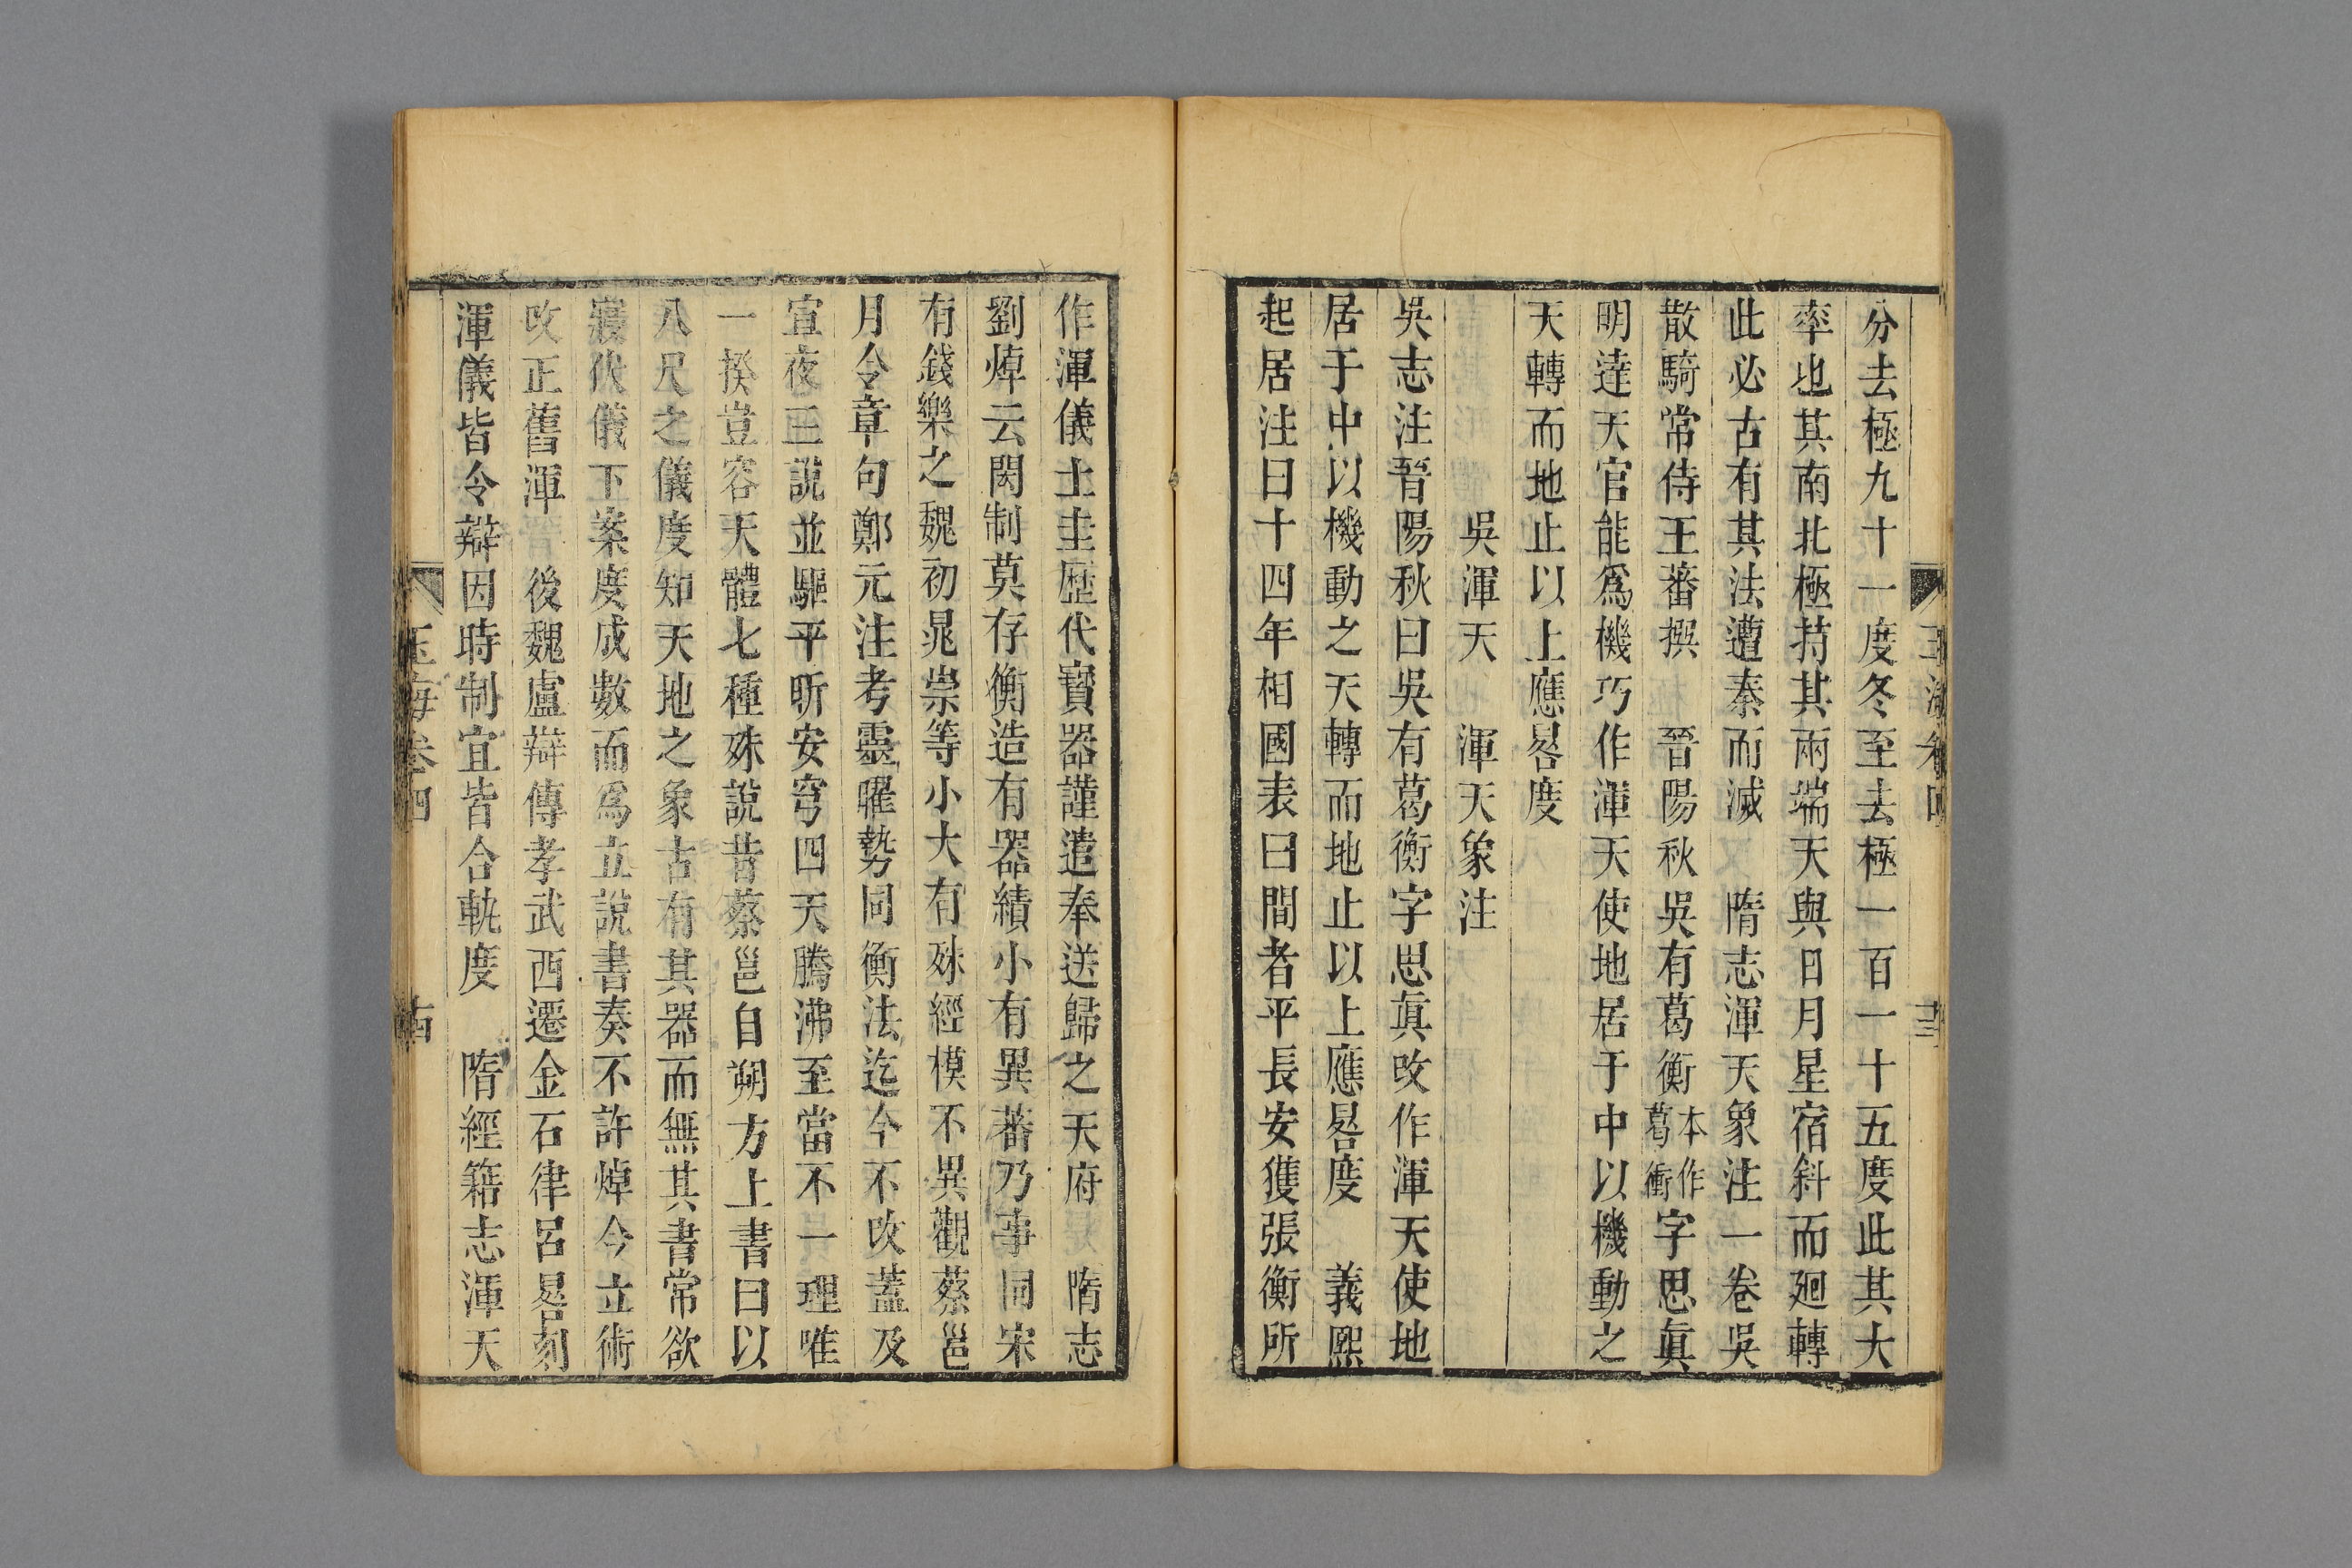 分去極九十一度冬至去極一百一十五度此其大
率也其南北極持其兩端天與日月星宿斜而廻轉
此必古有其法遭秦而滅 隋志渾天象注一卷吳
散騎常侍王蕃撰 晉陽秋吳有葛衡本作葛衝字思眞
明達天官能爲機巧作渾天使地居于中以機動之
天轉而地止以上應晷度
吳渾天 渾天象注
吳志注晉陽秋曰吳有葛衡字思眞改作渾天使地
居于中以機動之天轉而地止以上應晷度 義熙
起居注曰十四年相國表曰間者平長安獲張衡所
作渾儀土圭歷代寶器謹遣奉送歸之天府 隋志
劉焯云閎制莫存衡造有器績小有異蕃乃事同宋
有錢樂之魏初晁崇等小大有殊經模不異觀蔡邕
月令章句鄭元注考靈曜勢同衡法迄今不改蓋及
宣夜三說並驅平昕安穹四天騰沸至當不一理唯
一揆豈容天體七種殊說昔蔡邕自朔方上書曰以
八尺之儀度知天地之象古有其器而無其書常欲
寢伏儀下案度成數而爲立說書奏不許焯今立術
改正舊渾 後魏盧辯傳孝武西遷金石律呂晷刻
渾儀皆令辯因時制宜皆合軌度 隋經籍志渾天
玉海卷四 古